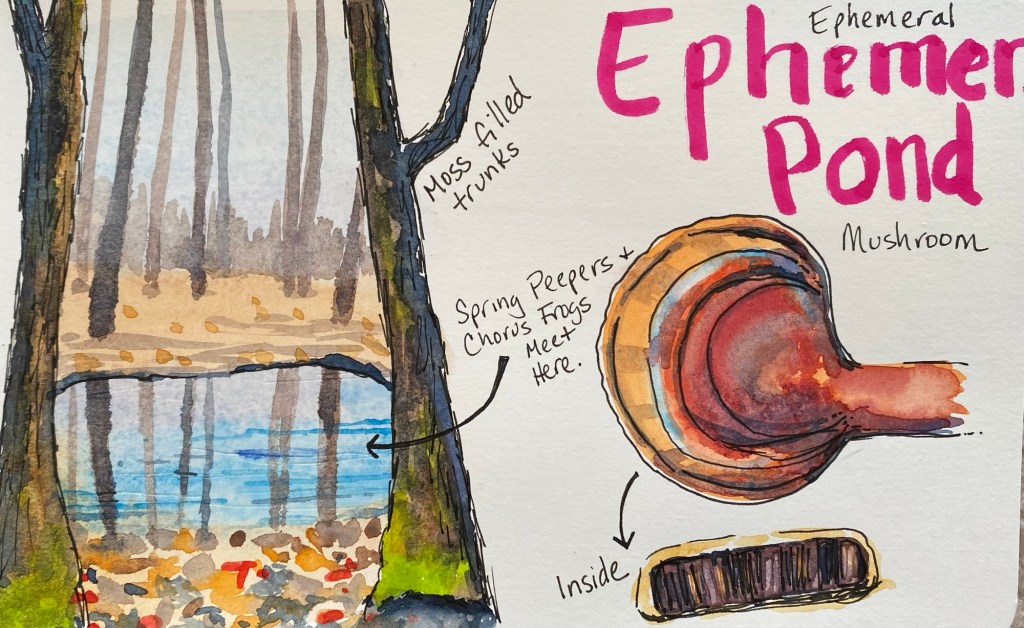 Ephemeral
Ephemer
Pond
Moss filled
trunks
Mushroom
Spring Peepers +
Chorus Frogs
Meet
Here.
Inside